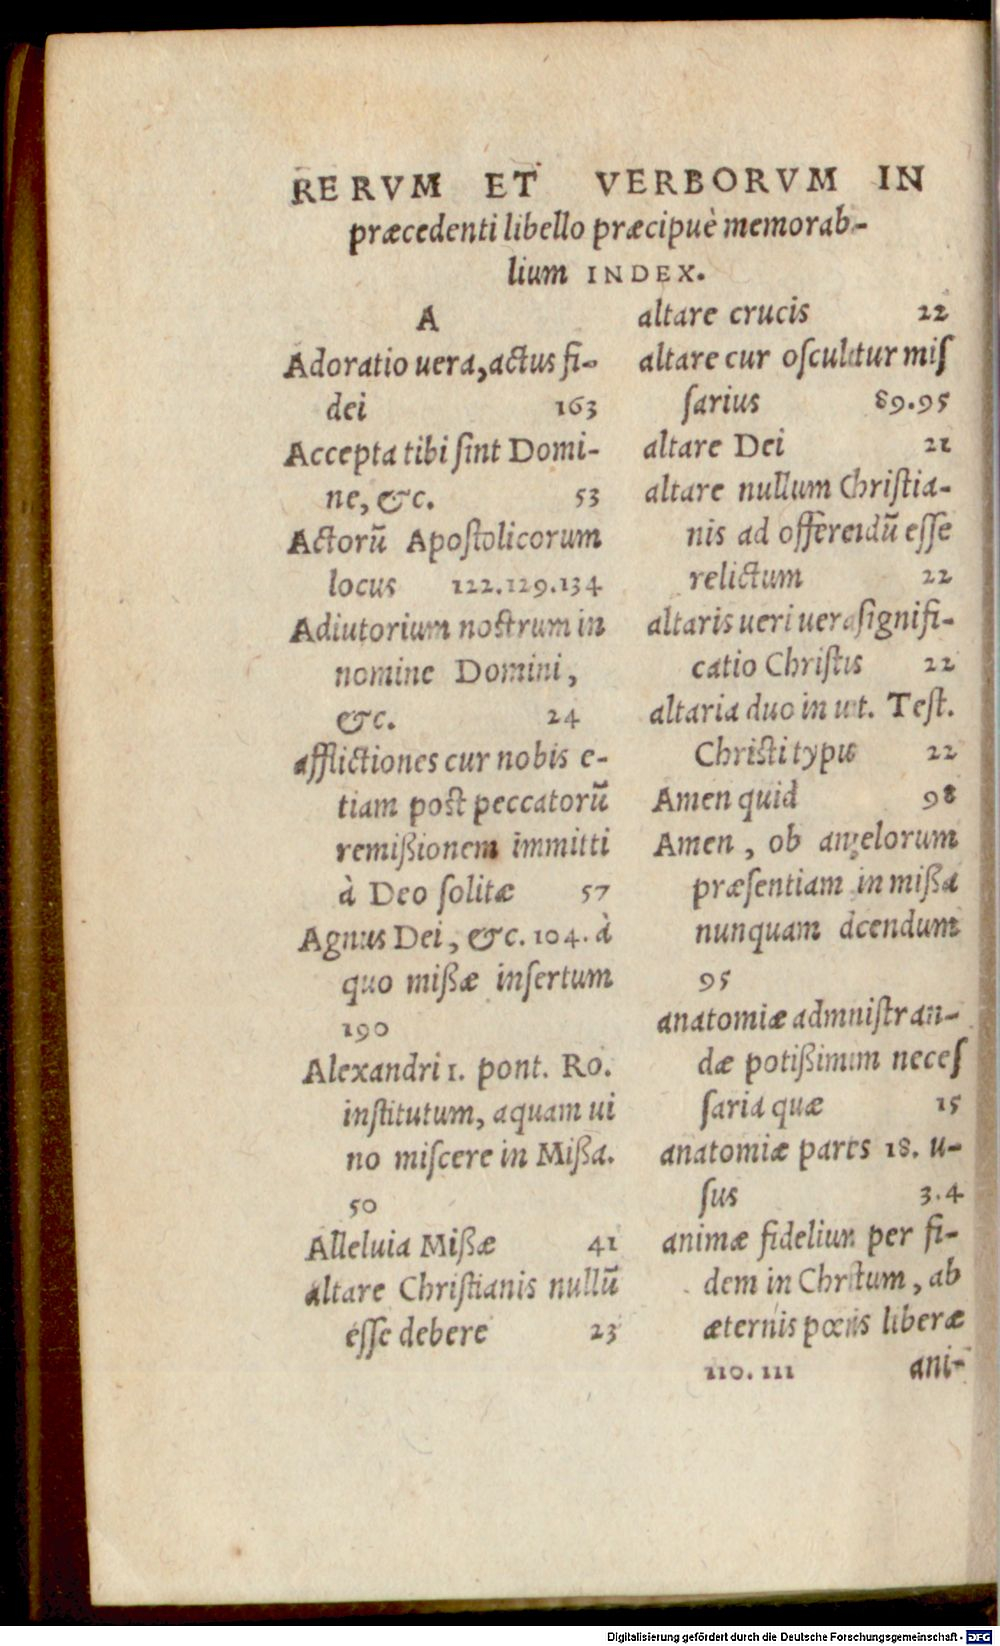 RERVM ET VERBORVM IN
præcedenti libello præcipuè memorab-
lium INDEX.
A
Adoratio uera, actus fi-
dei 163
Accepta tibi ſint Domi-
ne, &c. 53
Actorū Apoſtolicorum
locus 122.129.134
Adiutorium noſtrum in
nomine Domini,
&c. 24
afflictiones cur nobis e-
tiam poſt peccatorū
remißionem immitti
à Deo ſolitæ 57
Agnus Dei, &c. 104. à
quo mißæ inſertum
190
Alexandri 1. pont. Ro.
inſtitutum, aquam ui
no miſcere in Mißa.
50
Alleluia Mißæ 41
altare Chriſtianis nullū
eſſe debere 23
altare crucis 22
altare cur oſculetur miſ
ſarius 89.95
altare Dei 21
altare nullum Chriſtia-
nis ad offerendū eſſe
relictum 22
altaris ueri uera ſignifi-
catio Chriſtus 22
altaria duo in uet. Teſt.
Chriſti typus 22
Amen quid 98
Amen, ob angelorum
præſentiam in mißa
nunquam dicendum
95
anatomiæ adminiſtran-
dæ potißimum neceſ
ſaria quæ 15
anatomiæ partes 18. u-
ſus 3.4
animæ fidelium per fi-
dem in Chriſtum, ab
æternis pœnis liberæ
110.111 ani-
Digitalisierung gefördert durch die Deutsche Forschungsgemeinschaft - DFG